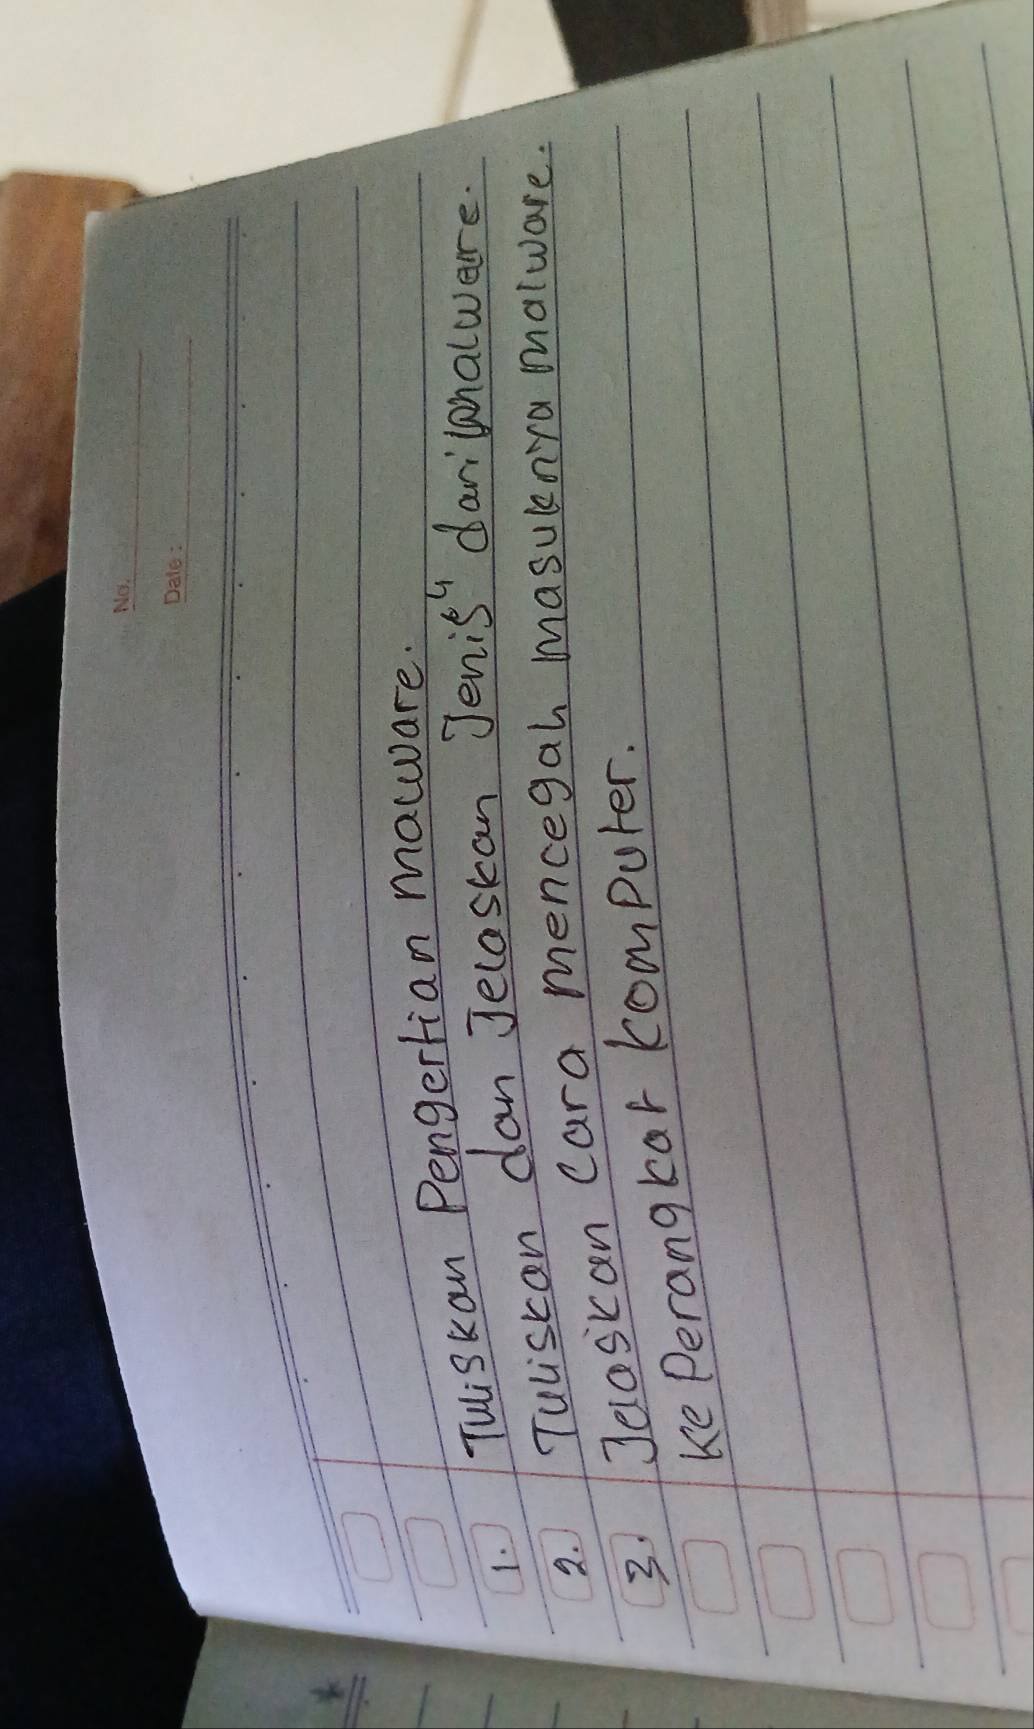 No.
Date :
1. Tuliskan Pengertian malware.
2. Tuliskan dan Jelaskan Jenis" dari malware.
3. Jelaskan cara mencegah masuknya malware.
ke Perangkat komputer.